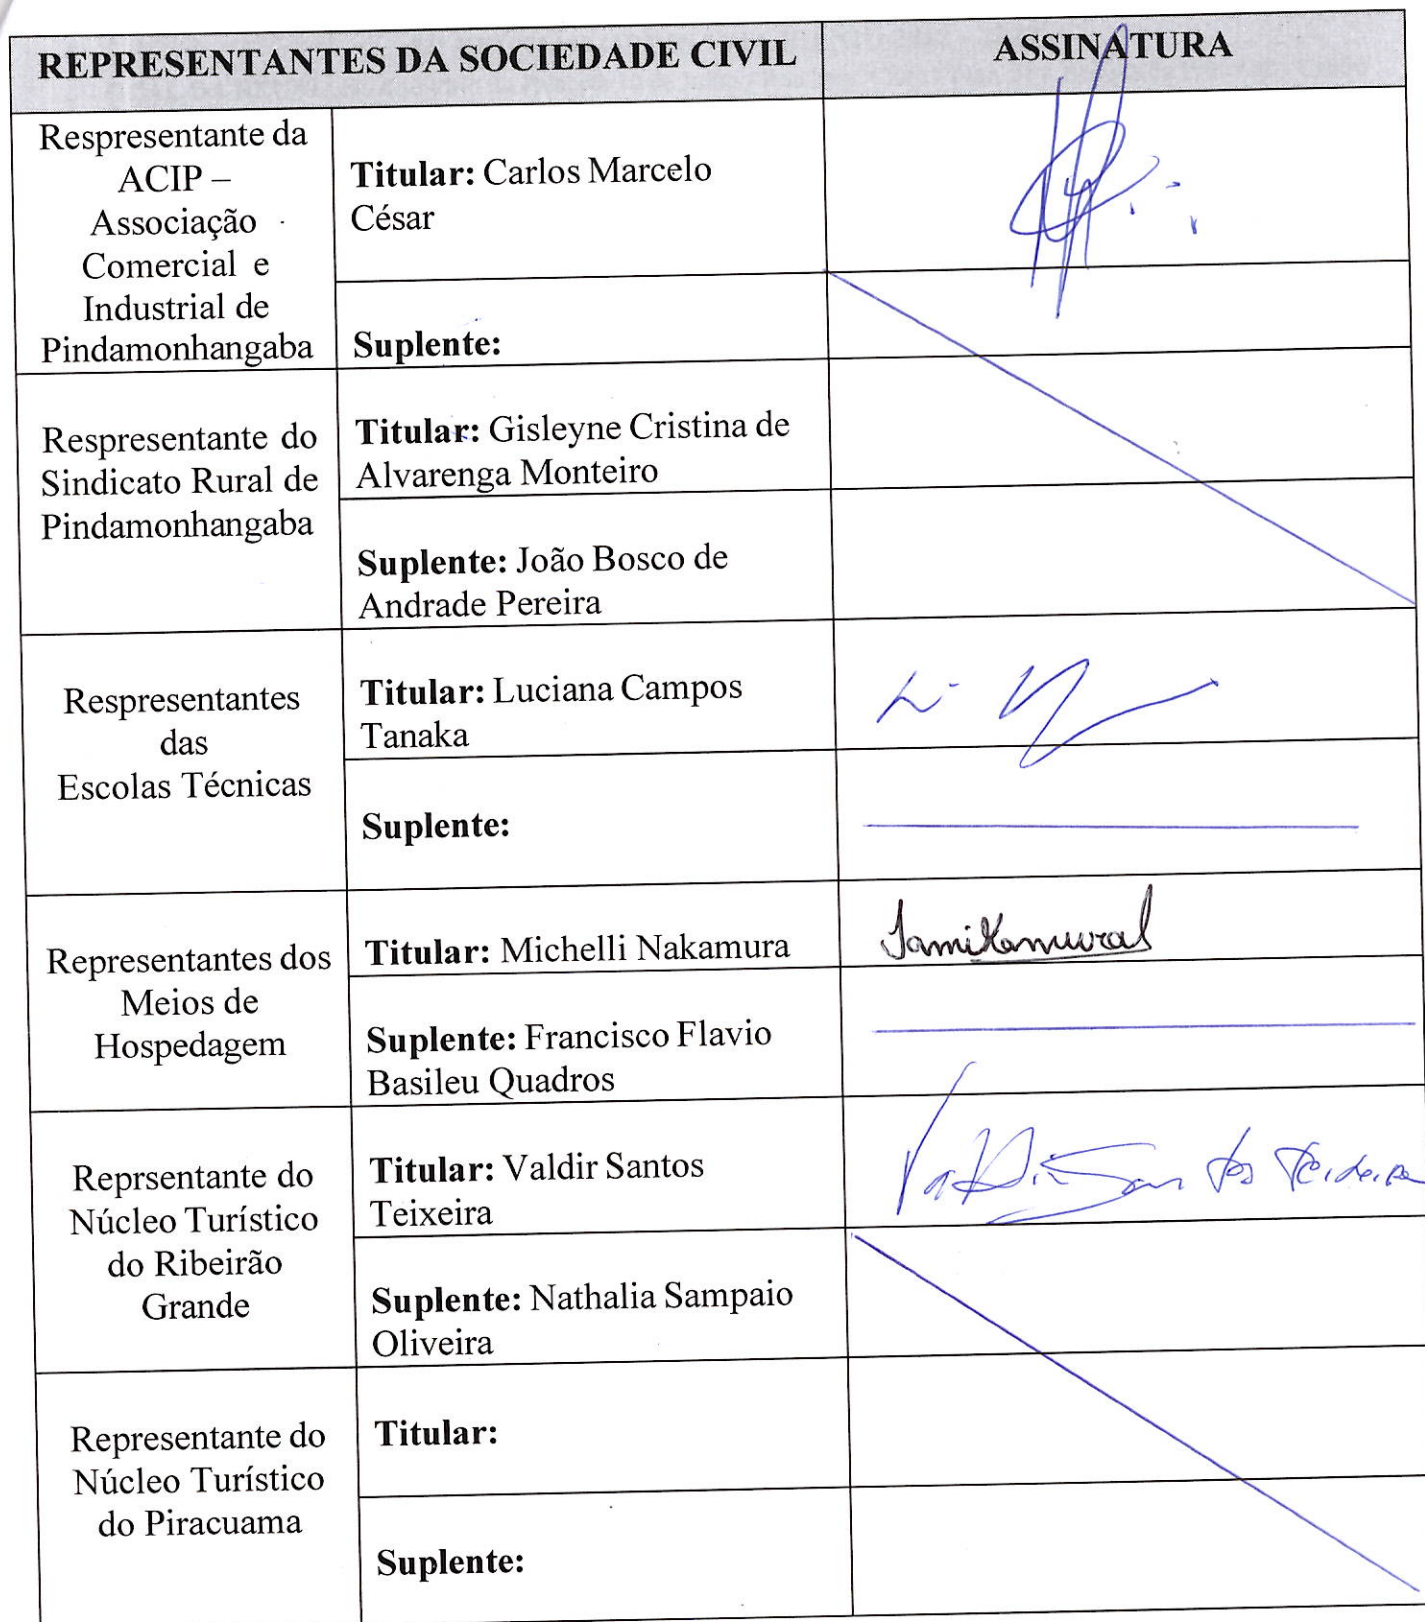 REPRESENTANTES DA SOCIEDADE CIVIL
ASSINATURA
Respresentante da
ACIP –
Associação
Comercial e
Industrial de
Pindamonhangaba
Titular: Carlos Marcelo
César
Suplente:
Respresentante do
Sindicato Rural de
Pindamonhangaba
Titular: Gisleyne Cristina de
Alvarenga Monteiro
Suplente: João Bosco de
Andrade Pereira
Respresentantes
das
Escolas Técnicas
Titular: Luciana Campos
Tanaka
Suplente:
Representantes dos
Meios de
Hospedagem
Titular: Michelli Nakamura
Suplente: Francisco Flavio
Basileu Quadros
Reprsentante do
Núcleo Turístico
do Ribeirão
Grande
Titular: Valdir Santos
Teixeira
Valdir Santos Teixeira
Suplente: Nathalia Sampaio
Oliveira
Representante do
Núcleo Turístico
do Piracuama
Titular:
Suplente: